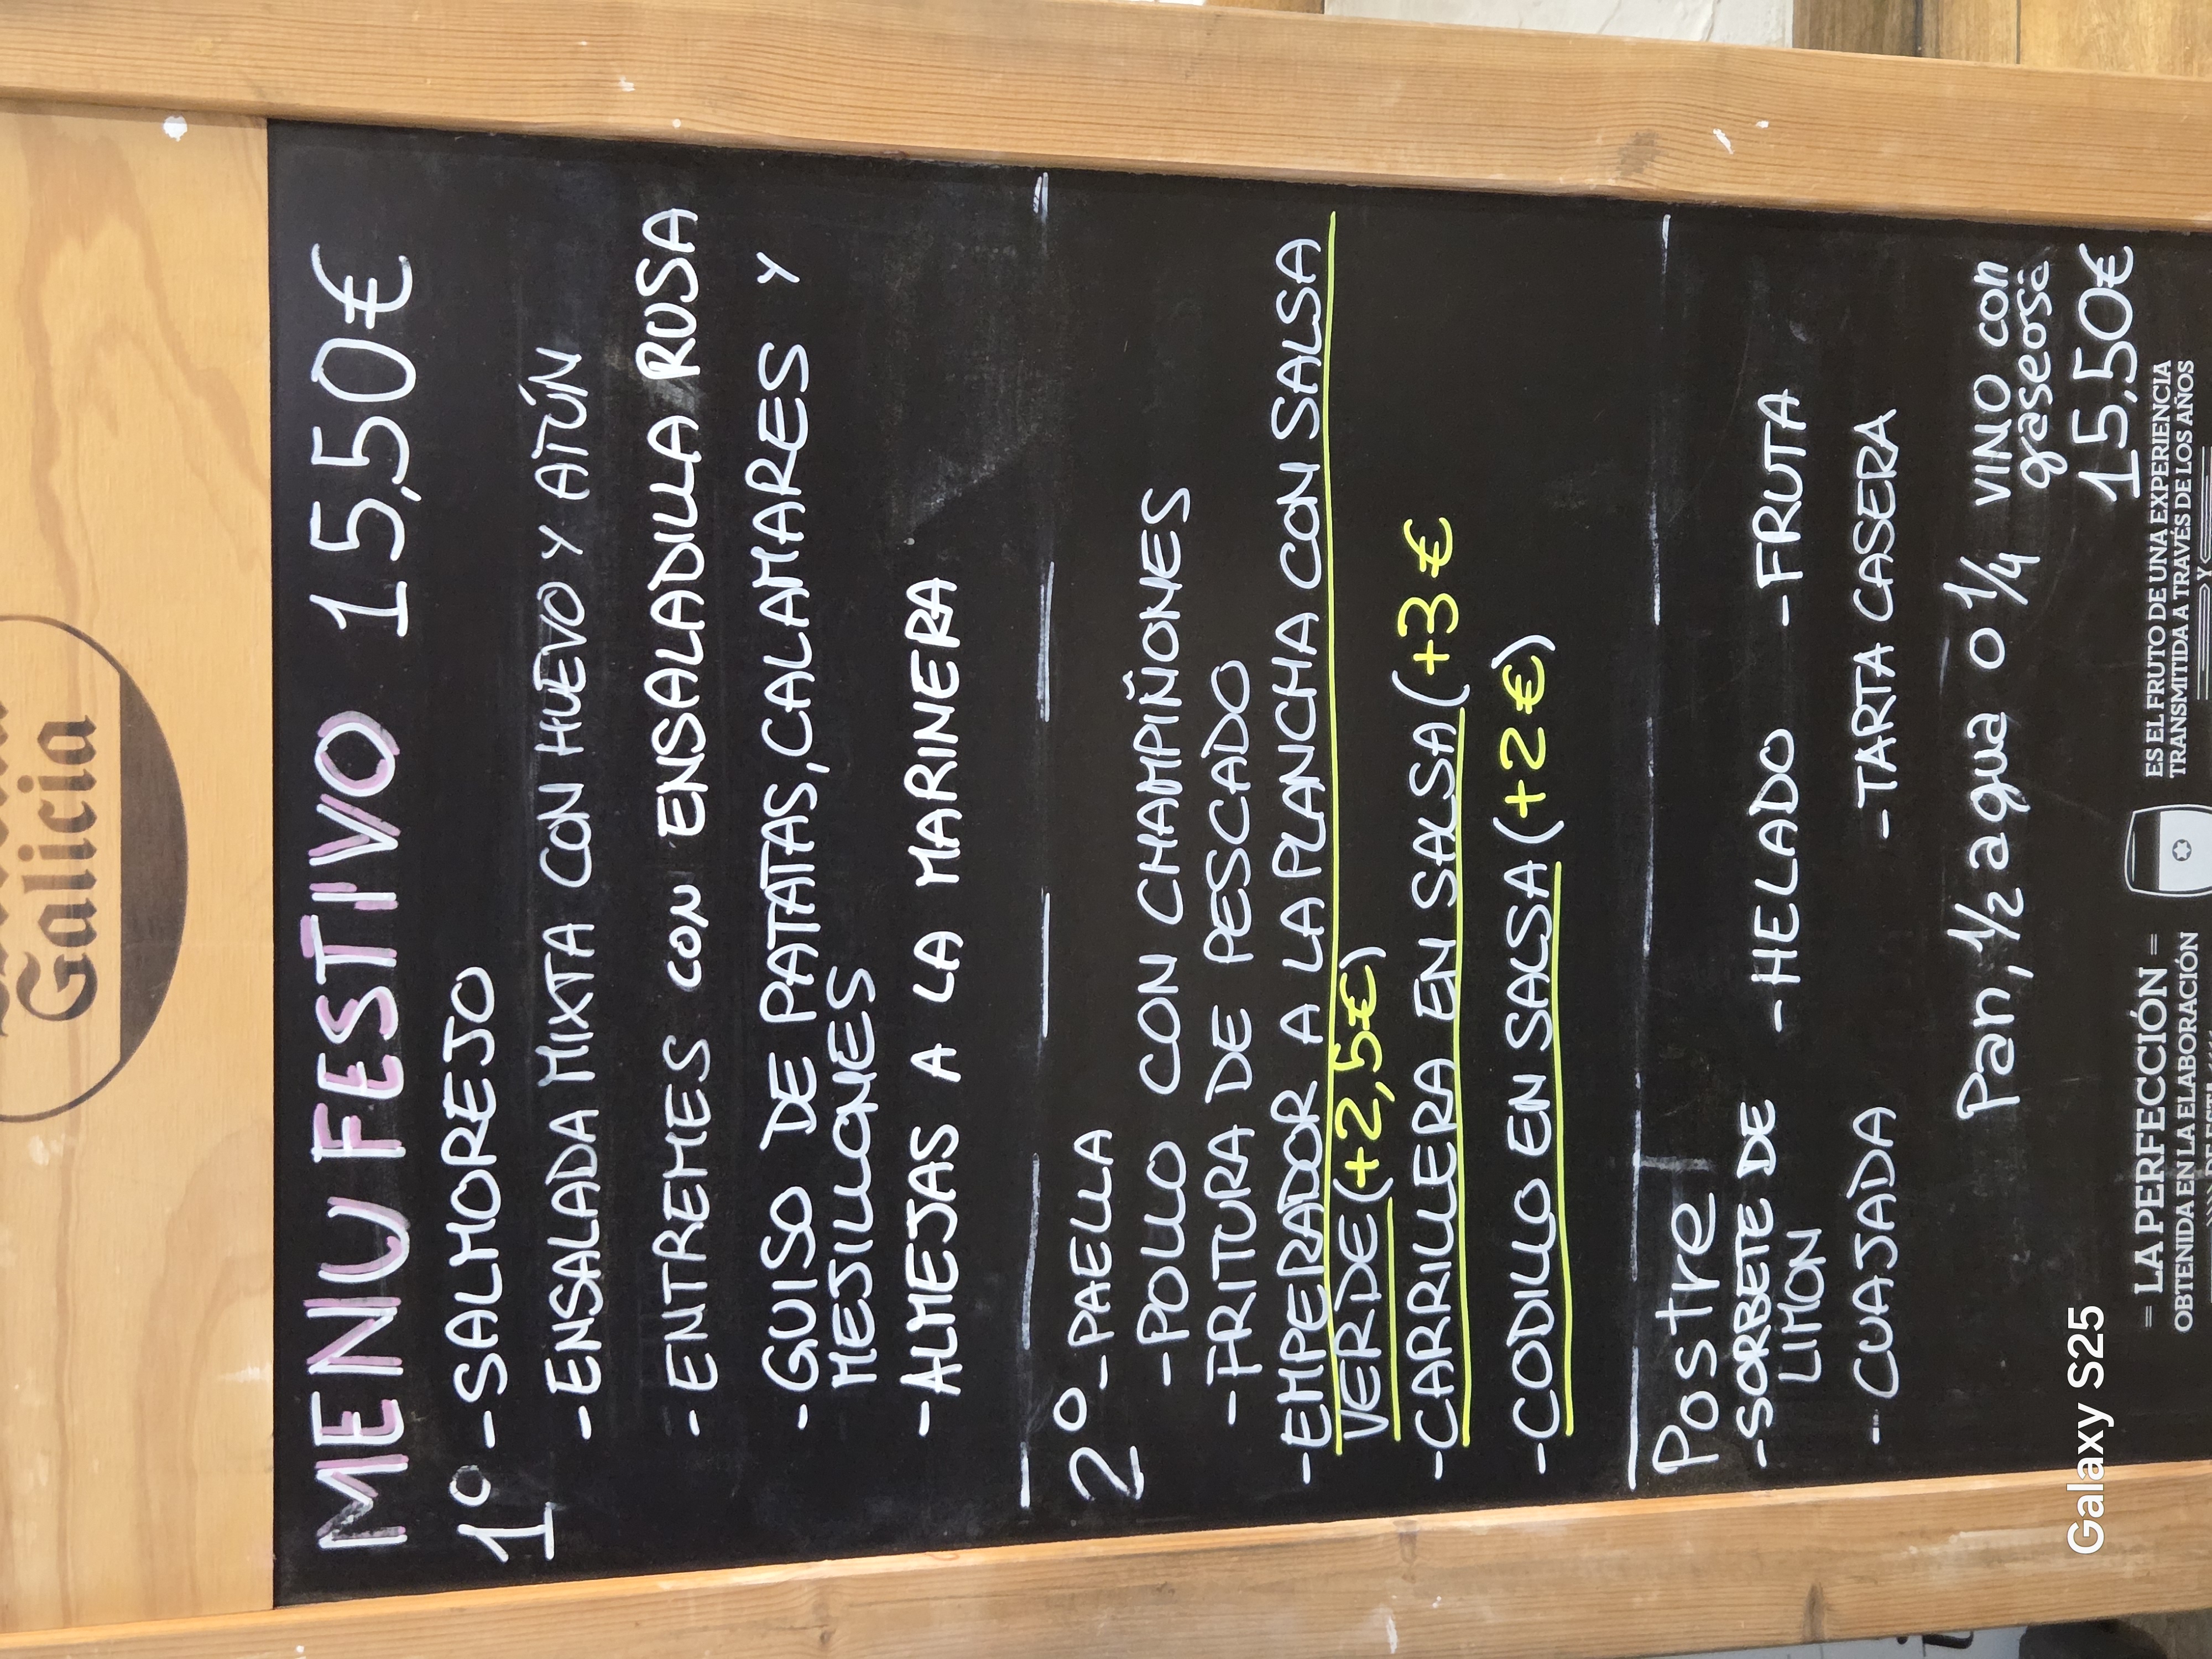 Galicia
MENU FESTIVO 15,50€
1º -SALMOREJO
-ENSALADA MIXTA CON HUEVO Y ATÚN
-ENTREMES CON ENSALADILLA RUSA
-GUISO DE PATATAS, CALAMARES Y
MEJILLONES
-ALMEJAS A LA MARINERA
2º -PAELLA
-POLLO CON CHAMPIÑONES
-FRITURA DE PESCADO
-EMPERADOR A LA PLANCHA CON SALSA
VERDE (+2,5€)
-CARRILLERA EN SALSA (+3€
-CODILLO EN SALSA (+2€)
Postre
-SORBETE DE
LIMON
-HELADO
-FRUTA
-CUAJADA
-TARTA CASERA
Pan, 1/2 agua o 1/4
VINO con
gaseosa
15,50€
LA PERFECCIÓN
OBTENIDA EN LA ELABORACIÓN
ES EL FRUTO DE UNA EXPERIENCIA
TRANSMITIDA A TRAVÉS DE LOS AÑOS
Y
Galaxy S25